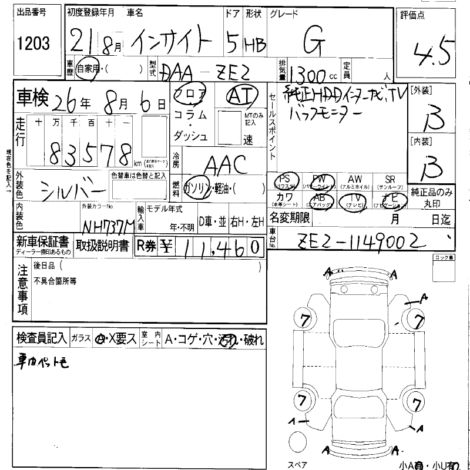 出品番号 初度登録年月 車名 ドア 形状 グレード 評価点
1203 21年8月 インサイト 5 HB G 4.5
車歴 自家用・( ) 型式 DAA-ZE2 排気量 1300cc 定員 人
車検 26年8月6日 フロア AT セールスポイント 純正HDDインターナビ、TV
バックモニター
コラム
ダッシュ
MTのみ記入 速
[外装] B
[内装] B
走行 十万千百十
83578km
現在色を記入
外装色 シルバー 色替車は色替と記入
冷房 AAC
燃料 ガソリン・軽油・( )
PS PW AW SR
(パワステ) (パワーウインド) (アルミホイル) (サンルーフ)
カワ AB TV ナビ
(本革シート) (エアバッグ) (テレビ) (ナビ)
純正品のみ丸印
内装色 カラーNo. NH737M 輸入車 モデル年式 年・不明 D車・並 右H・左H
名変期限 月 日迄
新車保証書 取扱説明書 R券 ¥11,460
ディーラー捺印あるもの
車台No. ZE2-1149002
注意事項 後日品( )
不具合箇所等
ロック車
検査員記入 ガラス ・X要ス 室内シート A・コゲ・穴・汚れ・破れ
車内ペット毛
A A
A
7 7
7 7
A A
A A
スペア 小A 小U